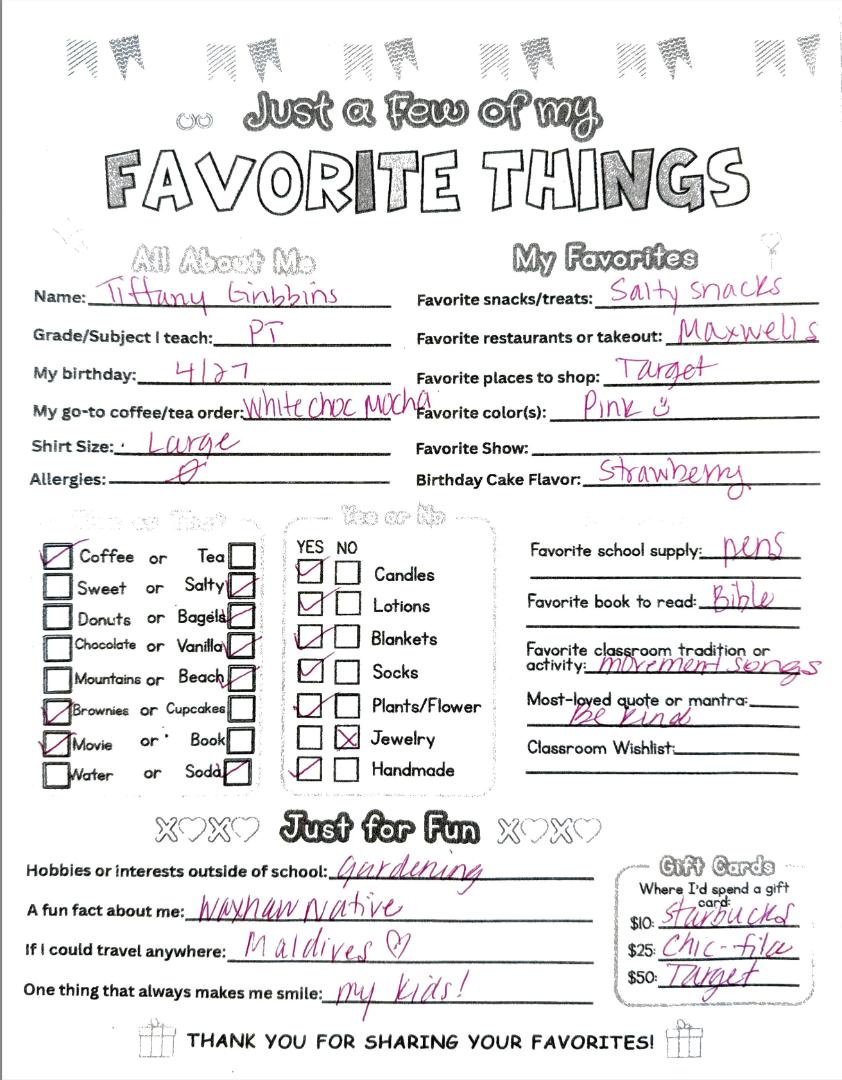 Just a Few of my
FAVORITE THINGS
All About Me
Name: Tiffany Ginbbins
Grade/Subject I teach: PT
My birthday: 4/27
My go-to coffee/tea order: White choc Mocha
Shirt Size: Large
Allergies: Ø
My Favorites
Favorite snacks/treats: Salty snacks
Favorite restaurants or takeout: Maxwells
Favorite places to shop: Target
Favorite color(s): Pink
Favorite Show:
Birthday Cake Flavor: Strawberry
This or That
Coffee or Tea
Sweet or Salty
Donuts or Bagels
Chocolate or Vanilla
Mountains or Beach
Brownies or Cupcakes
Movie or Book
Water or Soda
Yes or No
YES NO
Candles
Lotions
Blankets
Socks
Plants/Flower
Jewelry
Handmade
Favorite school supply: pens
Favorite book to read: Bible
Favorite classroom tradition or
activity: movement songs
Most-loved quote or mantra:
Be kind
Classroom Wishlist:
XOXO Just for Fun XOXO
Hobbies or interests outside of school: gardening
A fun fact about me: Waxhaw Native
If I could travel anywhere: Maldives ♡
One thing that always makes me smile: my kids!
Gift Cards
Where I'd spend a gift
card:
$10: Starbucks
$25: Chic-fila
$50: Target
THANK YOU FOR SHARING YOUR FAVORITES!